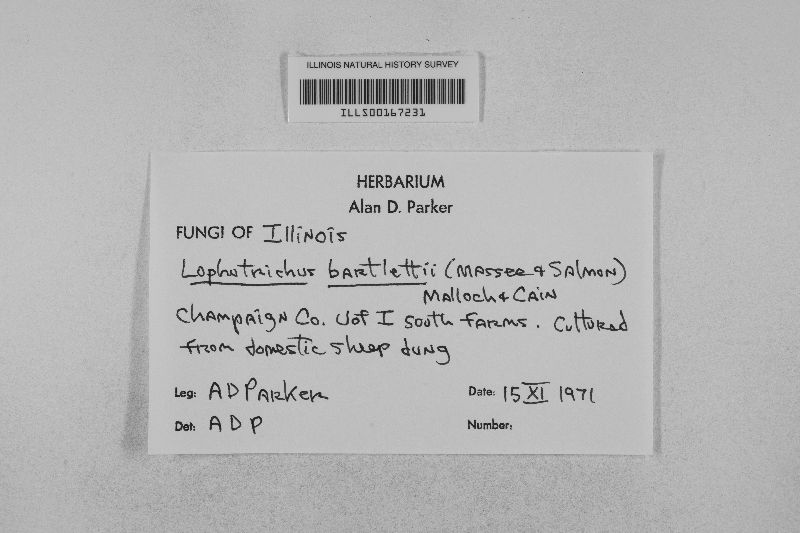 ILLINOIS NATURAL HISTORY SURVEY
ILLS00167231
HERBARIUM
Alan D. Parker
FUNGI OF Illinois
Lophotrichus bartlettii (Massee & Salmon)
Malloch & Cain
Champaign Co. U of I South Farms. Cultured
from domestic sheep dung
Leg: A D Parker
Date: 15 XI 1971
Det: A D P
Number: